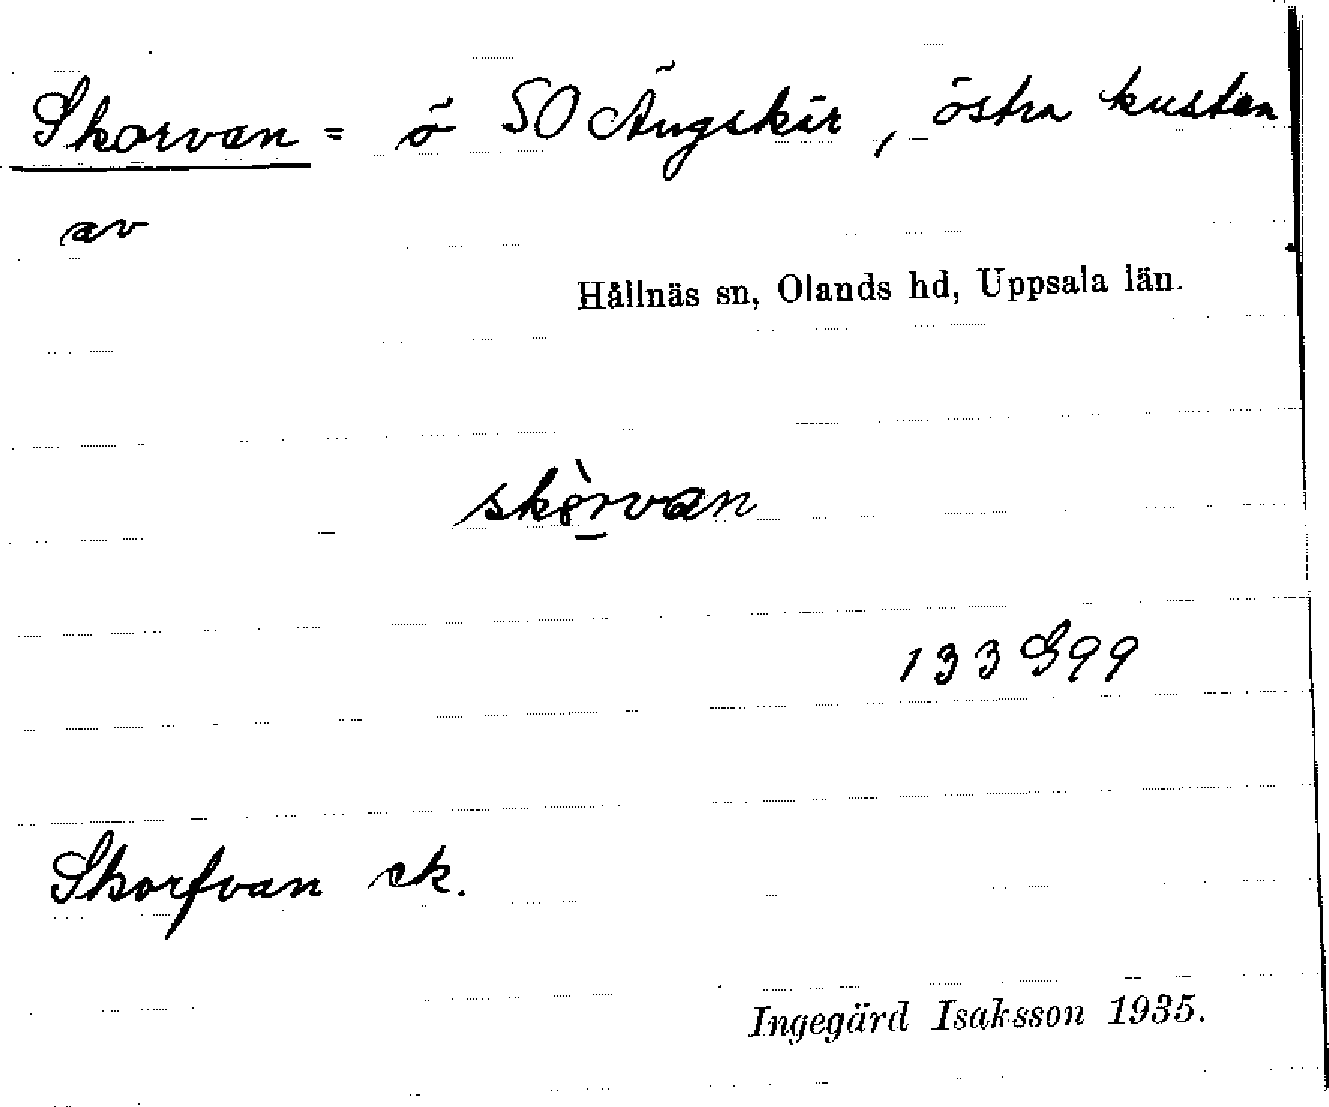 Skorvan = ö SO Ängskär, östra kusten
av
Hållnäs sn, Olands hd, Uppsala län.
skòrvan
133 S99
Skorfvan ek.
Ingegärd Isaksson 1935.